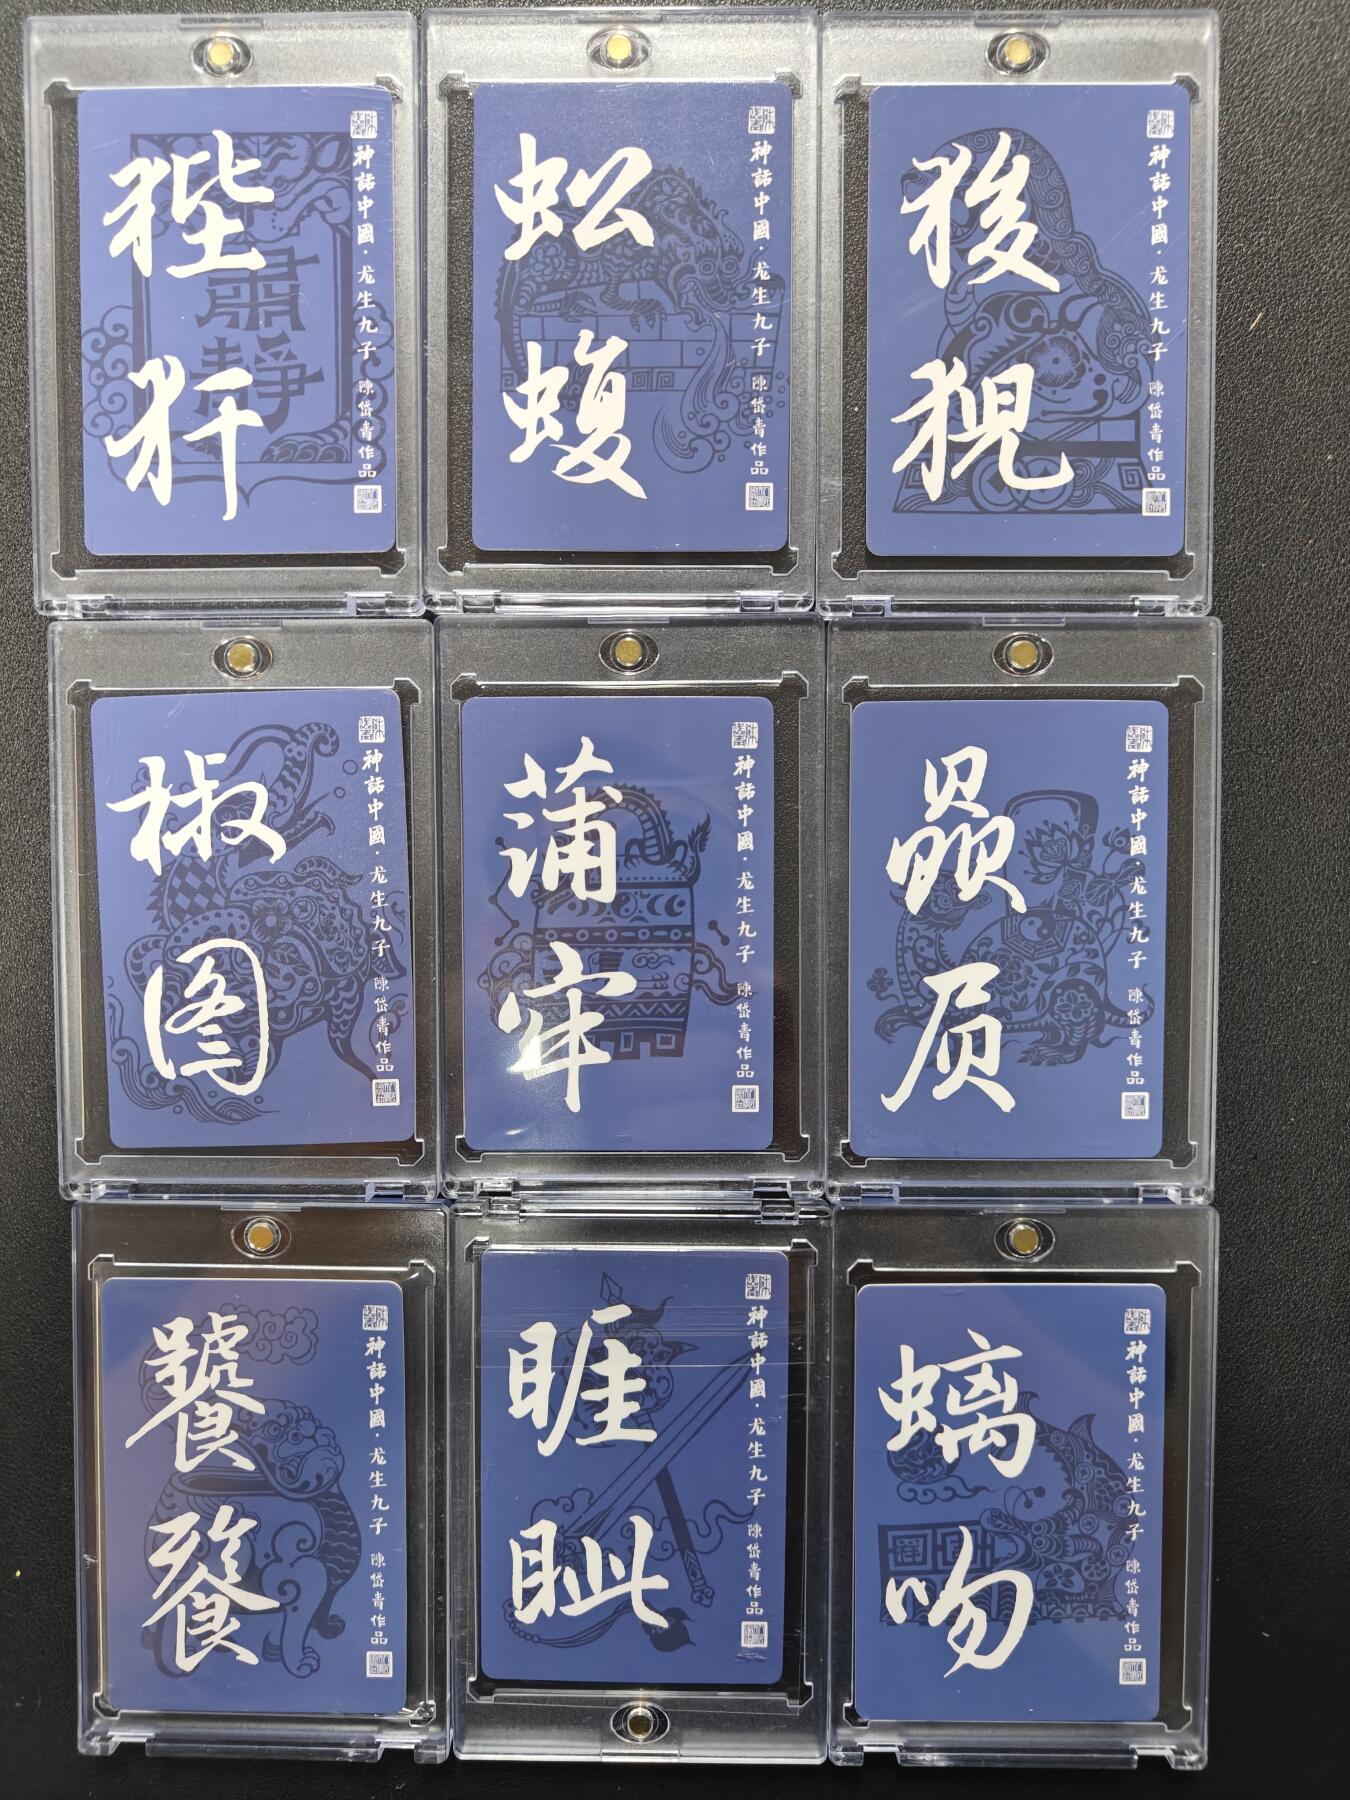 狴犴
肅靜
神話中國·龙生九子 陳岱青作品
蚣蝮
神話中國·龙生九子 陳岱青作品
狻猊
神話中國·龙生九子 陳岱青作品
椒图
神話中國·龙生九子 陳岱青作品
蒲牢
神話中國·龙生九子 陳岱青作品
贔屃
神話中國·龙生九子 陳岱青作品
饕餮
神話中國·龙生九子 陳岱青作品
睚眦
神話中國·龙生九子 陳岱青作品
螭吻
神話中國·龙生九子 陳岱青作品